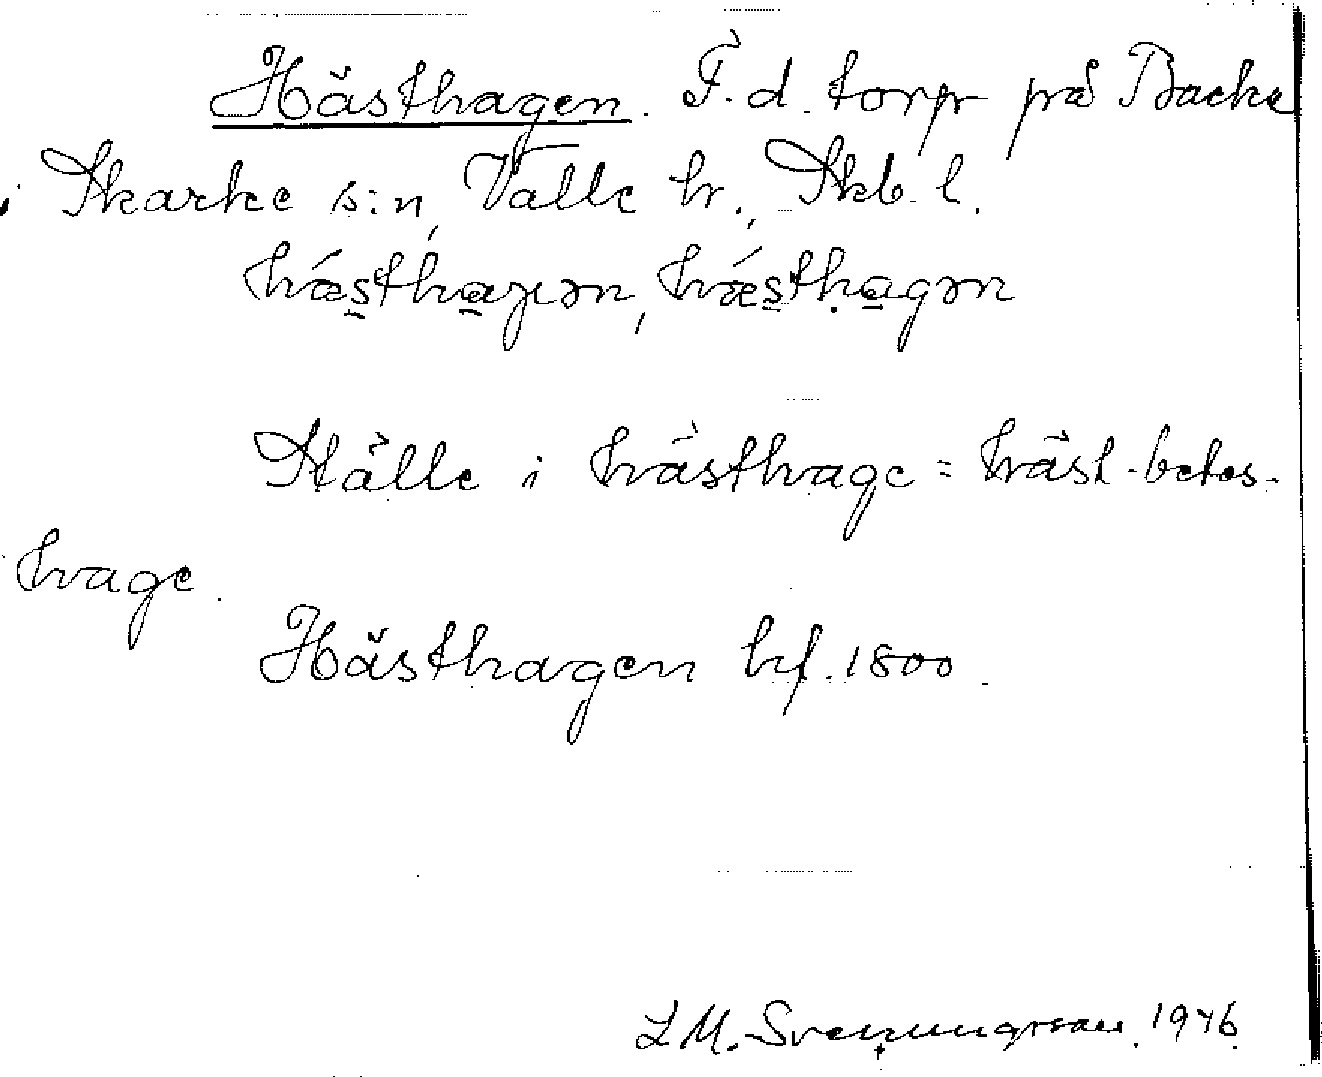 Hästhagen. F.d. torp på Backe
i Skarke s:n, Valle hr., Skb. l.
hǽsthaɡən, hǽsthagən
Ställe i hästhage = häst-betes-
hage.
Hästhagen hf. 1800.
L M. Svenungsson. 1946.